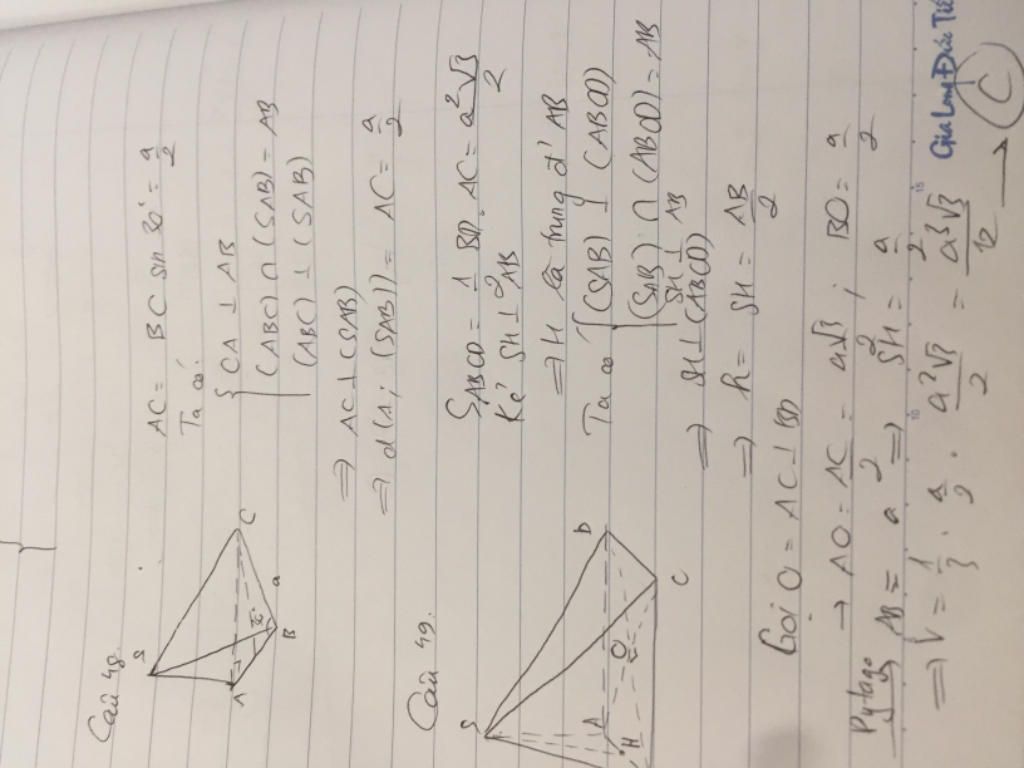 Câu 48.
S
A
B
C
a
30°
AC = BC sin 30° = a/2
Ta có:
{ CA ⊥ AB
(ABC) ∩ (SAB) = AB
(ABC) ⊥ (SAB)
⇒ AC ⊥ (SAB)
⇒ d(A; (SAB)) = AC = a/2
Câu 49.
S
A
D
H
O
C
S_ABCD = 1/2 BD. AC = a²√3/2
Kẻ SH ⊥ AB
⇒ H là trung đ' AB
Ta có { (SAB) ⊥ (ABCD)
(SAB) ∩ (ABCD) = AB
SH ⊥ AB
⇒ SH ⊥ (ABCD)
⇒ h = SH = AB/2
Gọi O = AC ⊥ BD
→ AO = AC/2 = a√3/2 ; BO = a/2
Pytago AB = a ⇒ SH = a/2
⇒ V = 1/3 . a/2 . a²√3/2 = a³√3/12 → C
Gia Long Đức Tiế
10
15